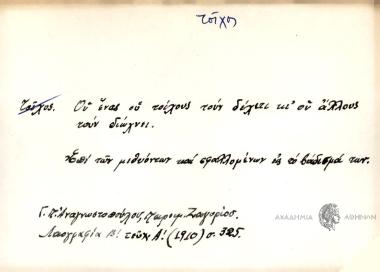 τοῖχος
Τοῖχος. Οὑ ἕνας οὑ τοίχους τοὺν δέχιτι κι' οὑ ἄλλους
τοὺν διώχνει.
Ἐπὶ τῶν μεθυόντων καὶ σφαλλομένων εἰς τὸ βάδισμά των.
Γ. Π. Ἀναγνωστοπούλου, Παροιμ. Ζαγορίου.
Λαογραφία Β! τεῦχ. Α! (1910) σ. 325.
ΑΚΑΔΗΜΙΑ ΑΘΗΝΩΝ